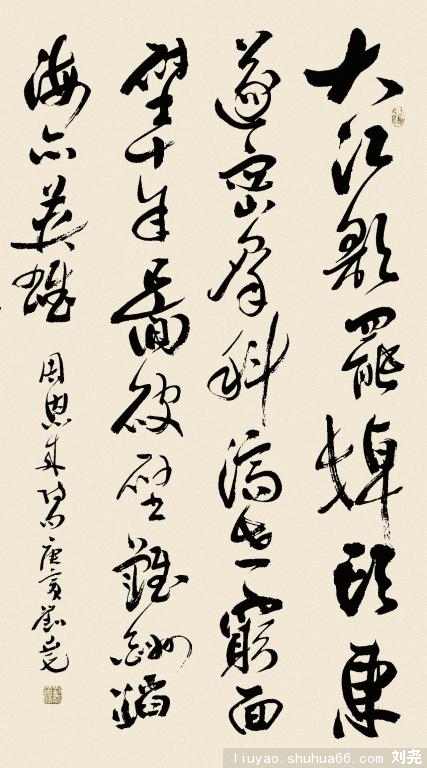 大江歌罷掉頭東
邃密群科濟世窮面
壁十年圖破壁難酬蹈
海亦英雄
周恩来詩庚寅劉堯
liuyao.shuhua66.com 刘尧